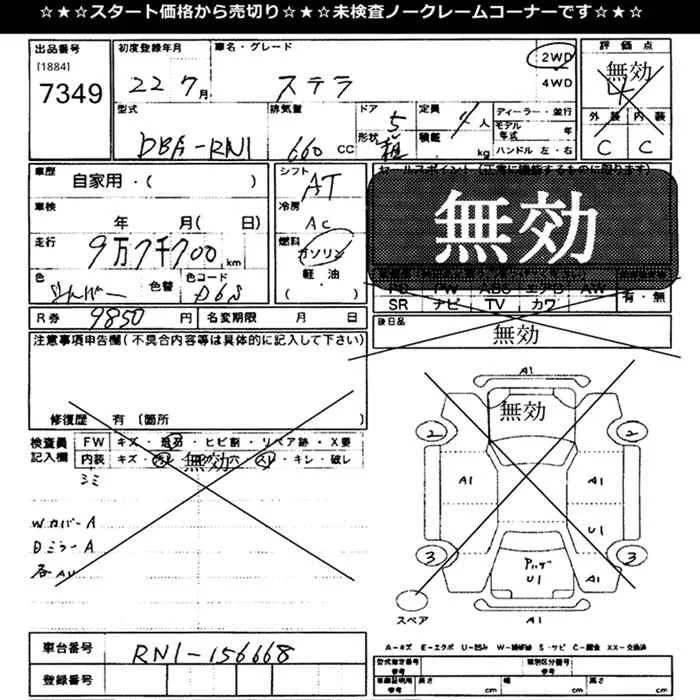 ☆★☆★スタート価格から売切り☆★☆★未検査ノークレームコーナーです☆★☆★
出品番号
[1884]
7349
初度登録年月
22 7月
車名・グレード
ステラ
2WD
4WD
評価点
無効
4
外装 内装
C C
型式
DBA-RN1
排気量
660 CC
ドア
5
形状
箱
定員
4人
積載
kg
ディーラー・並行
モデル年式 年
ハンドル 左・右
車歴
自家用・( )
車検
年 月( 日)
走行
9万7千700 km
色
シルバー
色替
色コード
D6S
シフト
AT
冷房
AC
燃料
ガソリン
軽・油
( )
セールスポイント(正常に機能するものに限ります)
無効
SR ナビ TV カワ
有・無
R券 9850 円
名変期限 月 日
後日品
無効
注意事項申告欄(不具合内容等は具体的に記入して下さい)
修復歴 有 [箇所
検査員
記入欄
FW キズ・追石・ヒビ割・リペア跡・X要
内装 キズ・無効・キレ・破レ
Wカバー A
Dミラー A
各AU
A1
無効
2 2
A1 A1
U1
3 3
バッゲ
U1
A1
スペア
A1
A-キズ E-エクボ U-凹み W-補修跡 S-サビ C-腐食 XX-交換済
車台番号
RN1-156668
登録番号
型式指定番号
参考
類別区分番号
参考
車庫証明用
参考
長さ cm
幅 cm
高さ cm